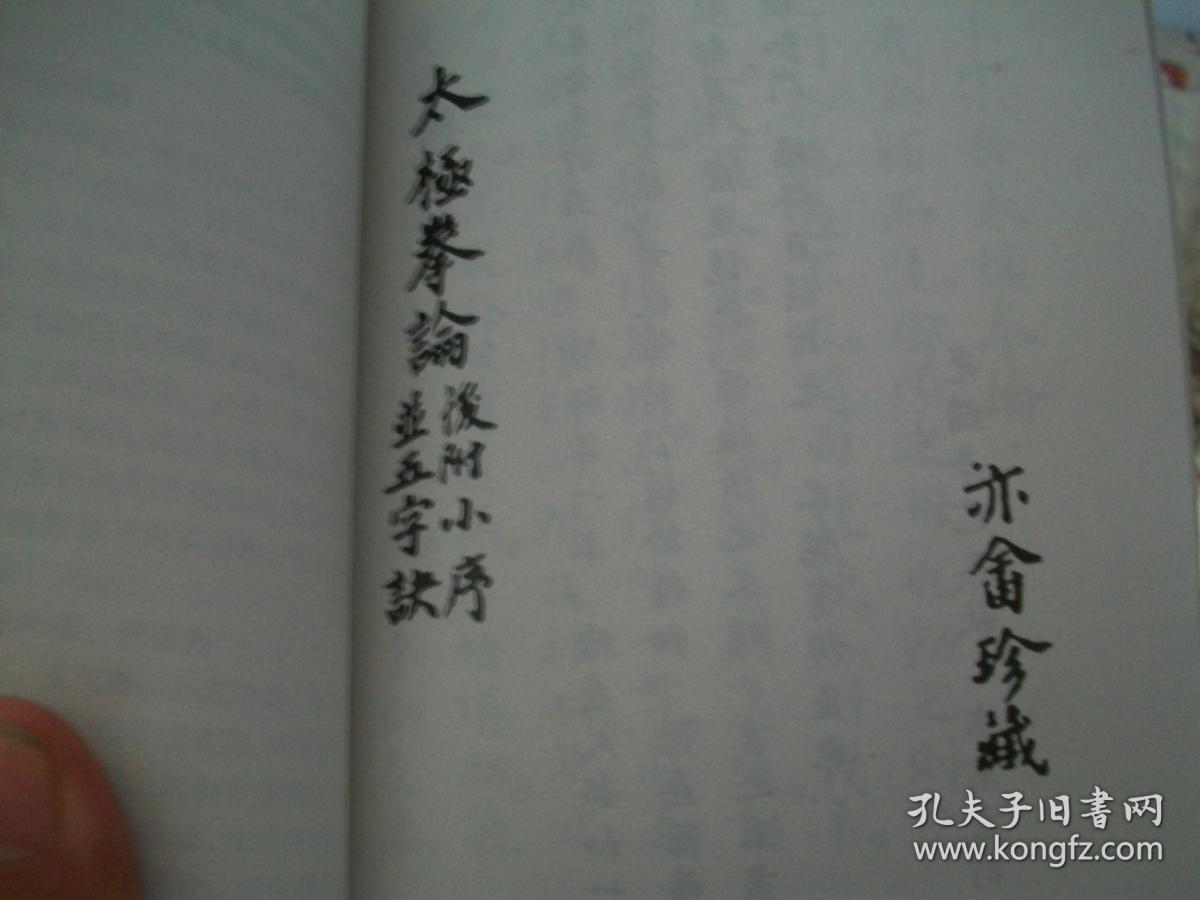 亦畬珍藏
太極拳論
後附小序
並五字訣
孔夫子旧書网
www.kongfz.com